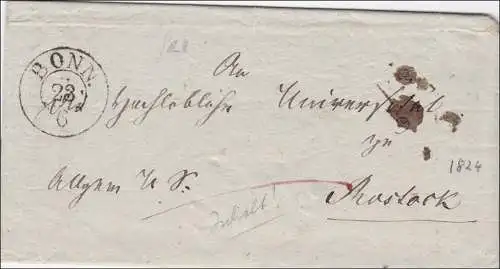 BONN.
23
6
An
Hochlöbliche Universität
zu
Rostock
Allgem U. S.
1824
Inhalt!